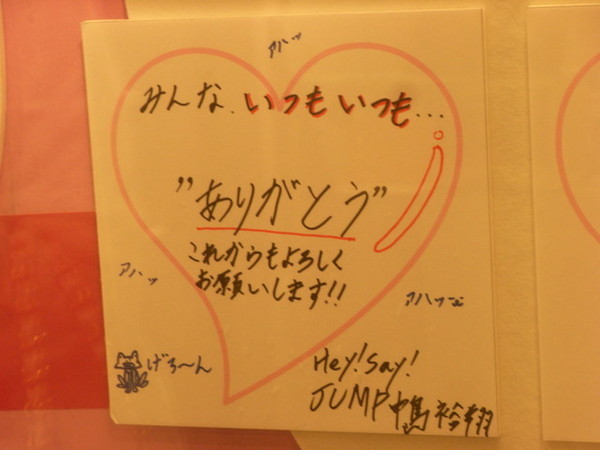 アハッ
みんな、いつもいつも…
"ありがとう"
これからもよろしく
お願いします!!
アハッ
アハッ
げろ〜ん
Hey! Say!
JUMP 中島裕翔